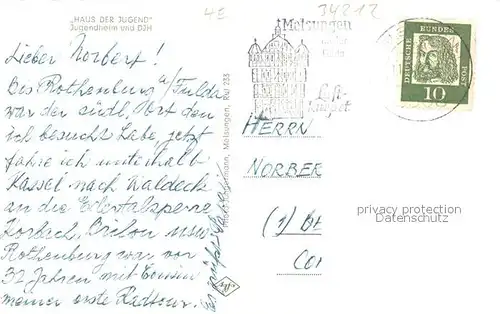 „HAUS DER JUGEND"
Jugendheim und DJH
Lieber Norbert!
Bei Rothenburg a/Fulda
war der südl. Ort den
ich besucht habe, jetzt
fahre ich unterhalb
Kassel nach Waldeck
an die Edertalsperre
Korbach, Brilon usw
Rothenburg war vor
32 Jahren mit Cousin
meiner erste Radtour.
Es grüßt
Melsungen, Ru 233
4E
34212
Melsungen
Luft-
HERRN
NORBER
(1) BE
DEUTSCHE BUNDESPOST
10
privacy protection
Datenschutz